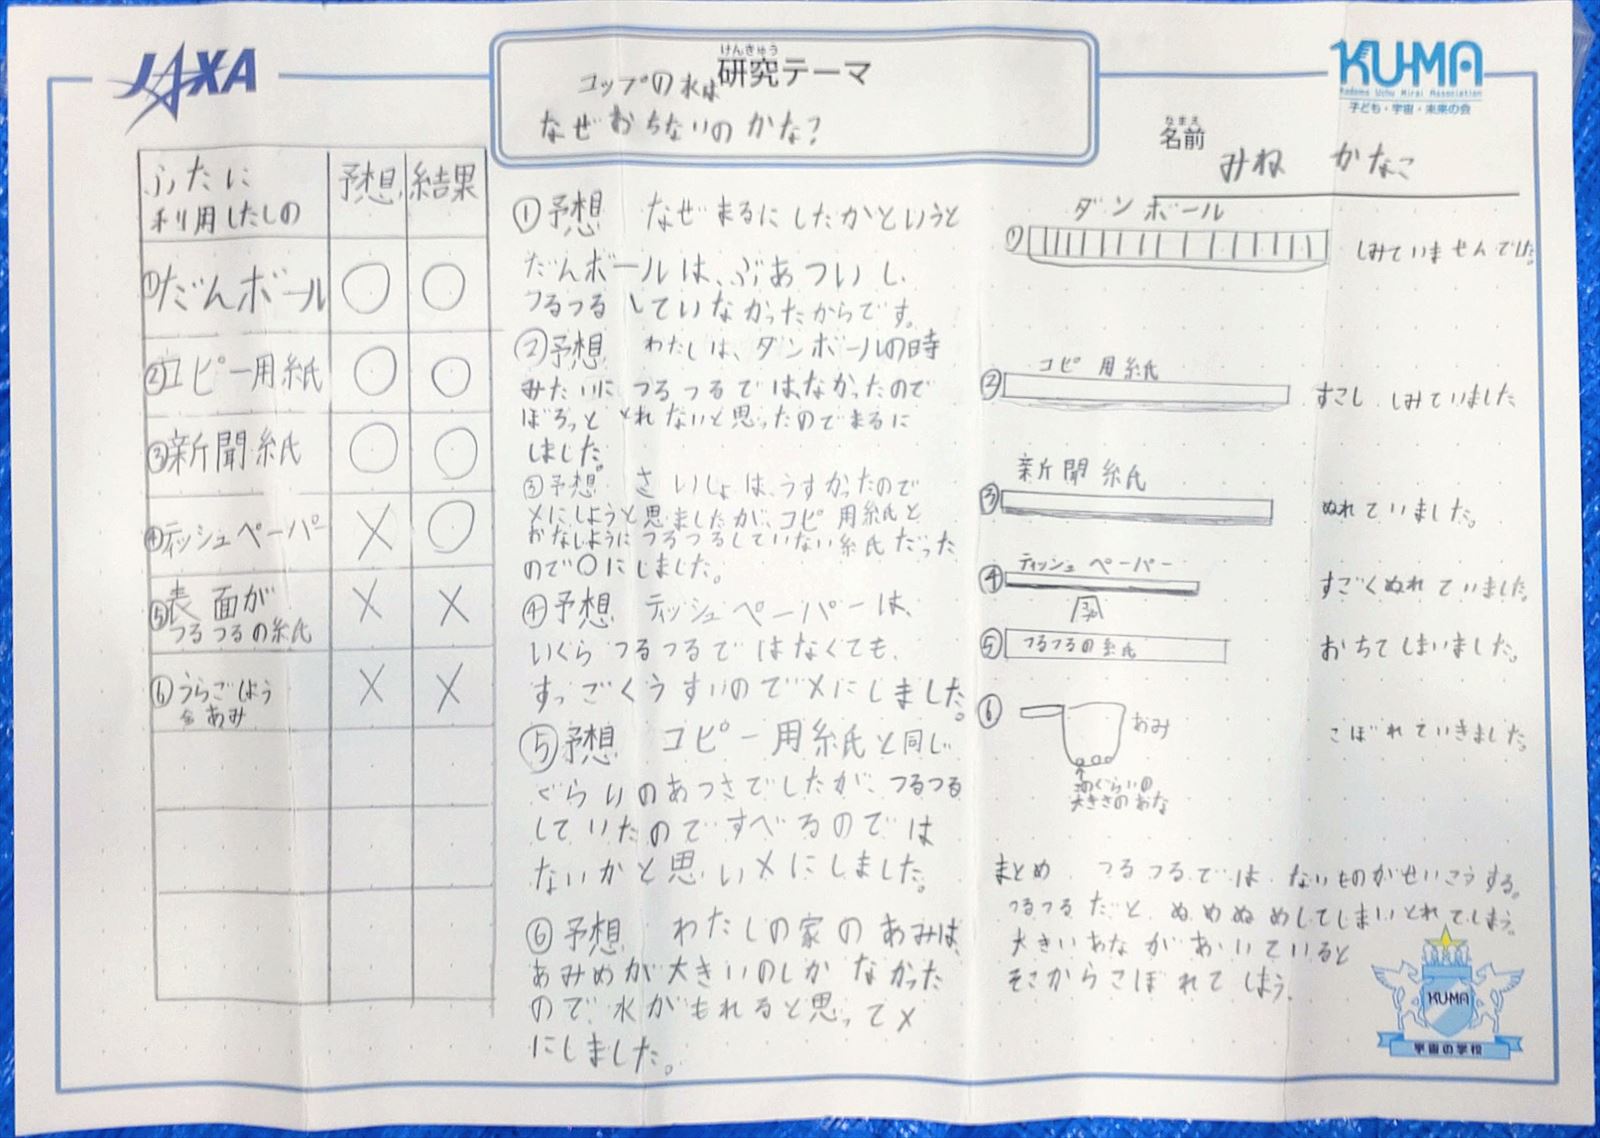 JAXA
けんきゅう
研究テーマ
コップの水は
なぜおちないのかな？
KU-MA
Kodomo Uchu Mirai Association
子ども・宇宙・未来の会
なまえ
名前
みね かなこ
ふたに
利用したしの
予想
結果
①だんボール ○ ○
②コピー用紙 ○ ○
③新聞紙 ○ ○
④ティッシュペーパー × ○
⑤表面が
つるつるの紙 × ×
⑥うらごしよう
あみ × ×
①予想 なぜまるにしたかというと
だんボールは、ぶあついし、
つるつるしていなかったからです。
②予想 わたしは、ダンボールの時
みたいにつるつるではなかったので
ぼろっととれないと思ったのでまるに
しました。
③予想 さいしょは、うすかったので
×にしようと思ましたが、コピー用紙と
おなしようにつるつるしていない紙だった
ので○にしました。
④予想 ティッシュペーパーは、
いくらつるつるではなくても、
すっごくうすいので×にしました。
⑤予想 コピー用紙と同じ
ぐらいのあつさでしたが、つるつる
していたのですべるのでは
ないかと思い×にしました。
⑥予想 わたしの家のあみは、
あみめが大きいのしかなかった
ので、水がもれると思って×
にしました。
ダンボール
① しみていませんでした。
コピー用紙
② すこし しみていました
新聞紙
③ ぬれていました。
ティッシュペーパー
④ すごくぬれていました。
⑤ つるつるの紙 おちてしまいました。
⑥ あみ こぼれていきました。
ぐらいの
大きさのあな
まとめ つるつるではないものがせいこうする。
つるつるだとぬめぬめしてしまいとれてしまう。
大きいあながあいていると
そこからこぼれてしまう。
KU-MA
宇宙の学校